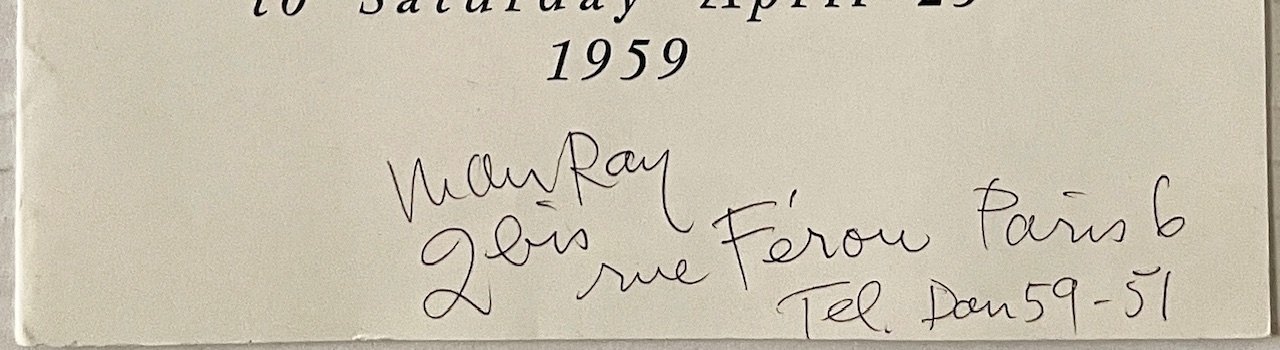 to Saturday April 25
1959
Man Ray
2bis rue Férou Paris 6
Tel. Dan 59-51